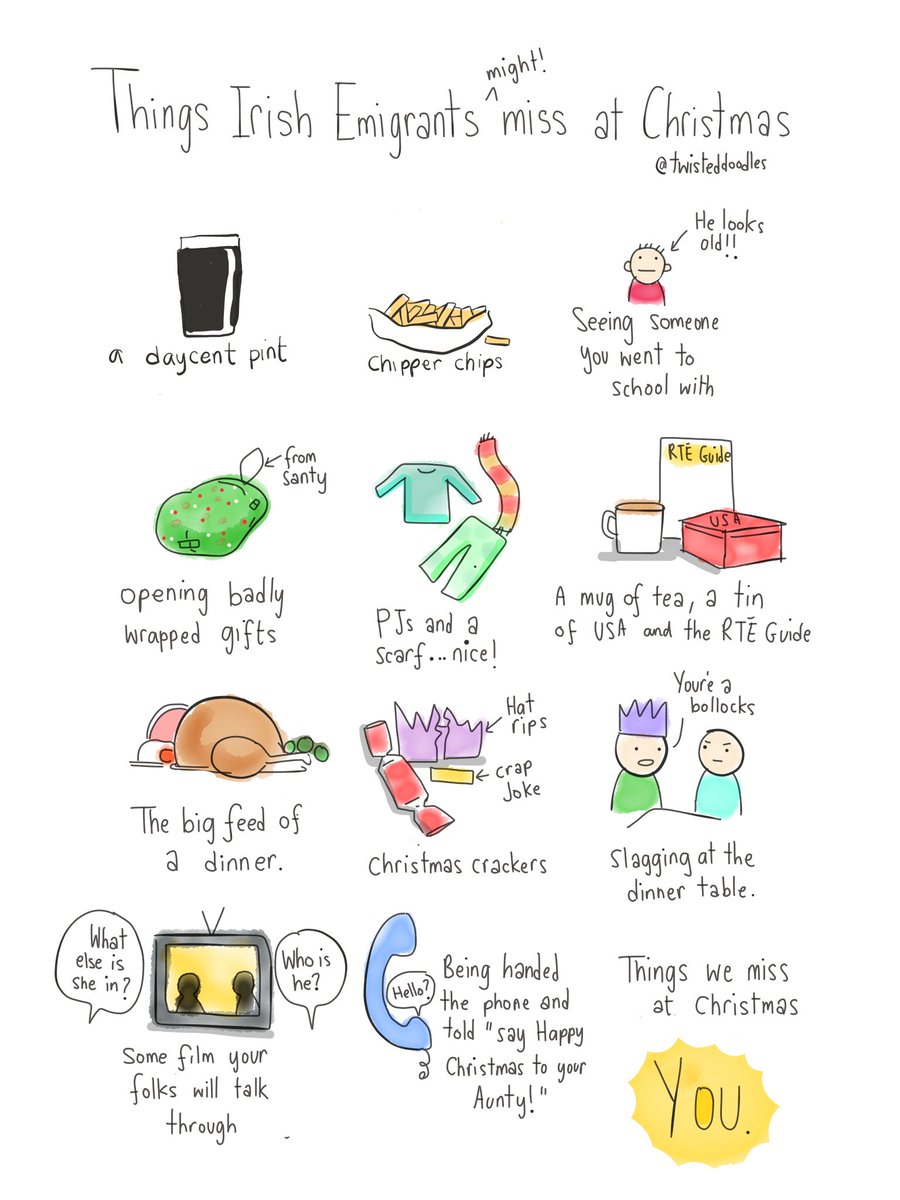 might!
Things Irish Emigrants ^ miss at Christmas
@twisteddoodles
a daycent pint
Chipper chips
He looks
old!!
Seeing someone
you went to
school with
from
Santy
opening badly
wrapped gifts
PJs and a
scarf...nice!
RTÉ Guide
USA
A mug of tea, a tin
of USA and the RTÉ Guide
The big feed of
a dinner.
Hat
rips
crap
Joke
Christmas crackers
Your'e a
bollocks
Slagging at the
dinner table.
What
else is
she in?
Who is
he?
Some film your
folks will talk
through
Hello?
Being handed
the phone and
told "say Happy
Christmas to your
Aunty!"
Things we miss
at Christmas
YOU.